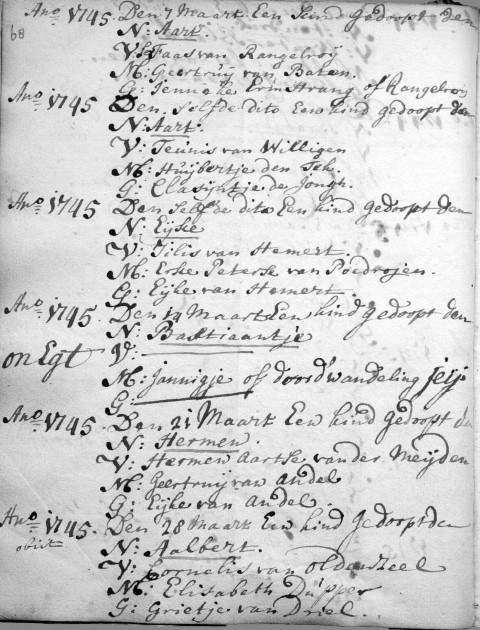 68
Ano 1745. Den 7 Maart Een kind gedoopt den
N: Aart.
V: Faas van Rangelrooij
M: Geertruij van Baten.
G: Jenneke ErmStrang of Rangelrooij
Ano 1745 Den Selfde dito Een kind gedoopt den
N: Aart.
V: Teunis van Willigen
M: Huijbertje den Tek.
G: Clasijntje de Jongh.
Ano 1745 Den Selfde dito Een kind gedoopt den
N: Eijke
V: Jilis van Hemert.
M: Erke Peterse van Poedrojen.
G: Eijke van Hemert
Ano 1745. Den 14 Maart Een kind gedoopt den
N: Bastiaantje
onEgt V:
M: Jannigje of doordwandeling jeijs
G:
Ano 1745. Den 21 Maart Een kind gedoopt den
N: Hermen.
V: Hermen Aartse van der Meijden
M: Geertruij van Andel
G: Eijke van Andel.
Ano 1745. Den 28 Maart Een kind gedoopt den
obiit N: Aalbert.
V: Cornelis van Oldensteel
M: Elisabeth Dupper
G: Grietje van Driel.